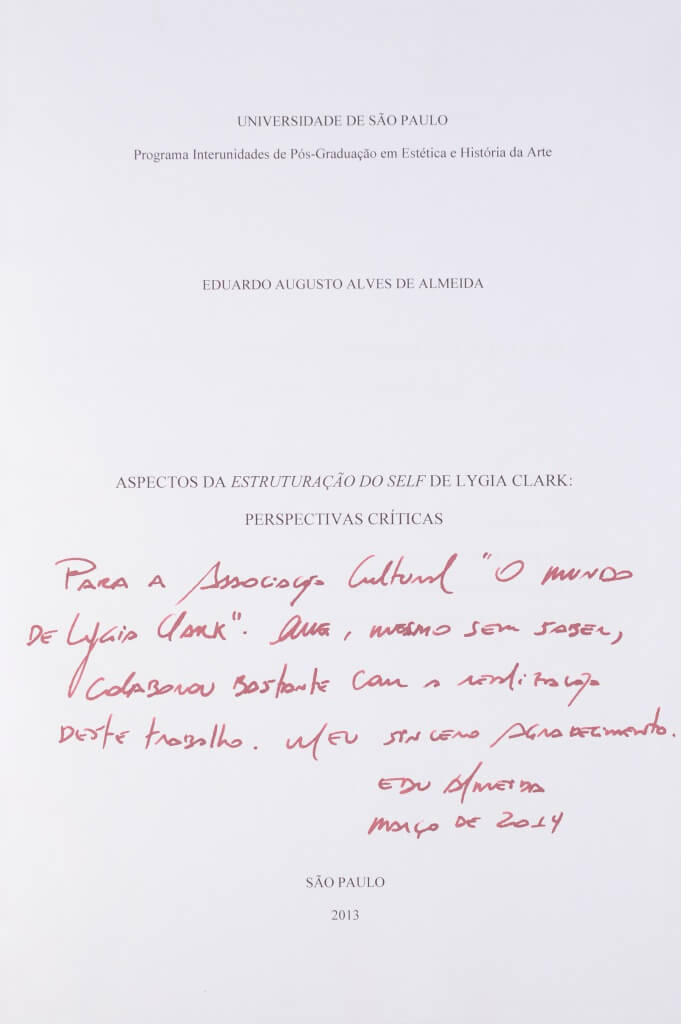 UNIVERSIDADE DE SÃO PAULO
Programa Interunidades de Pós-Graduação em Estética e História da Arte
EDUARDO AUGUSTO ALVES DE ALMEIDA
ASPECTOS DA ESTRUTURAÇÃO DO SELF DE LYGIA CLARK:
PERSPECTIVAS CRÍTICAS
PARA A ASSOCIAÇÃO CULTURAL "O MUNDO
DE LYGIA CLARK". QUE, MESMO SEM SABER,
COLABOROU BASTANTE COM A REALIZAÇÃO
DESTE TRABALHO. MEU SINCERO AGRADECIMENTO.
EDU ALMEIDA
MARÇO DE 2014
SÃO PAULO
2013